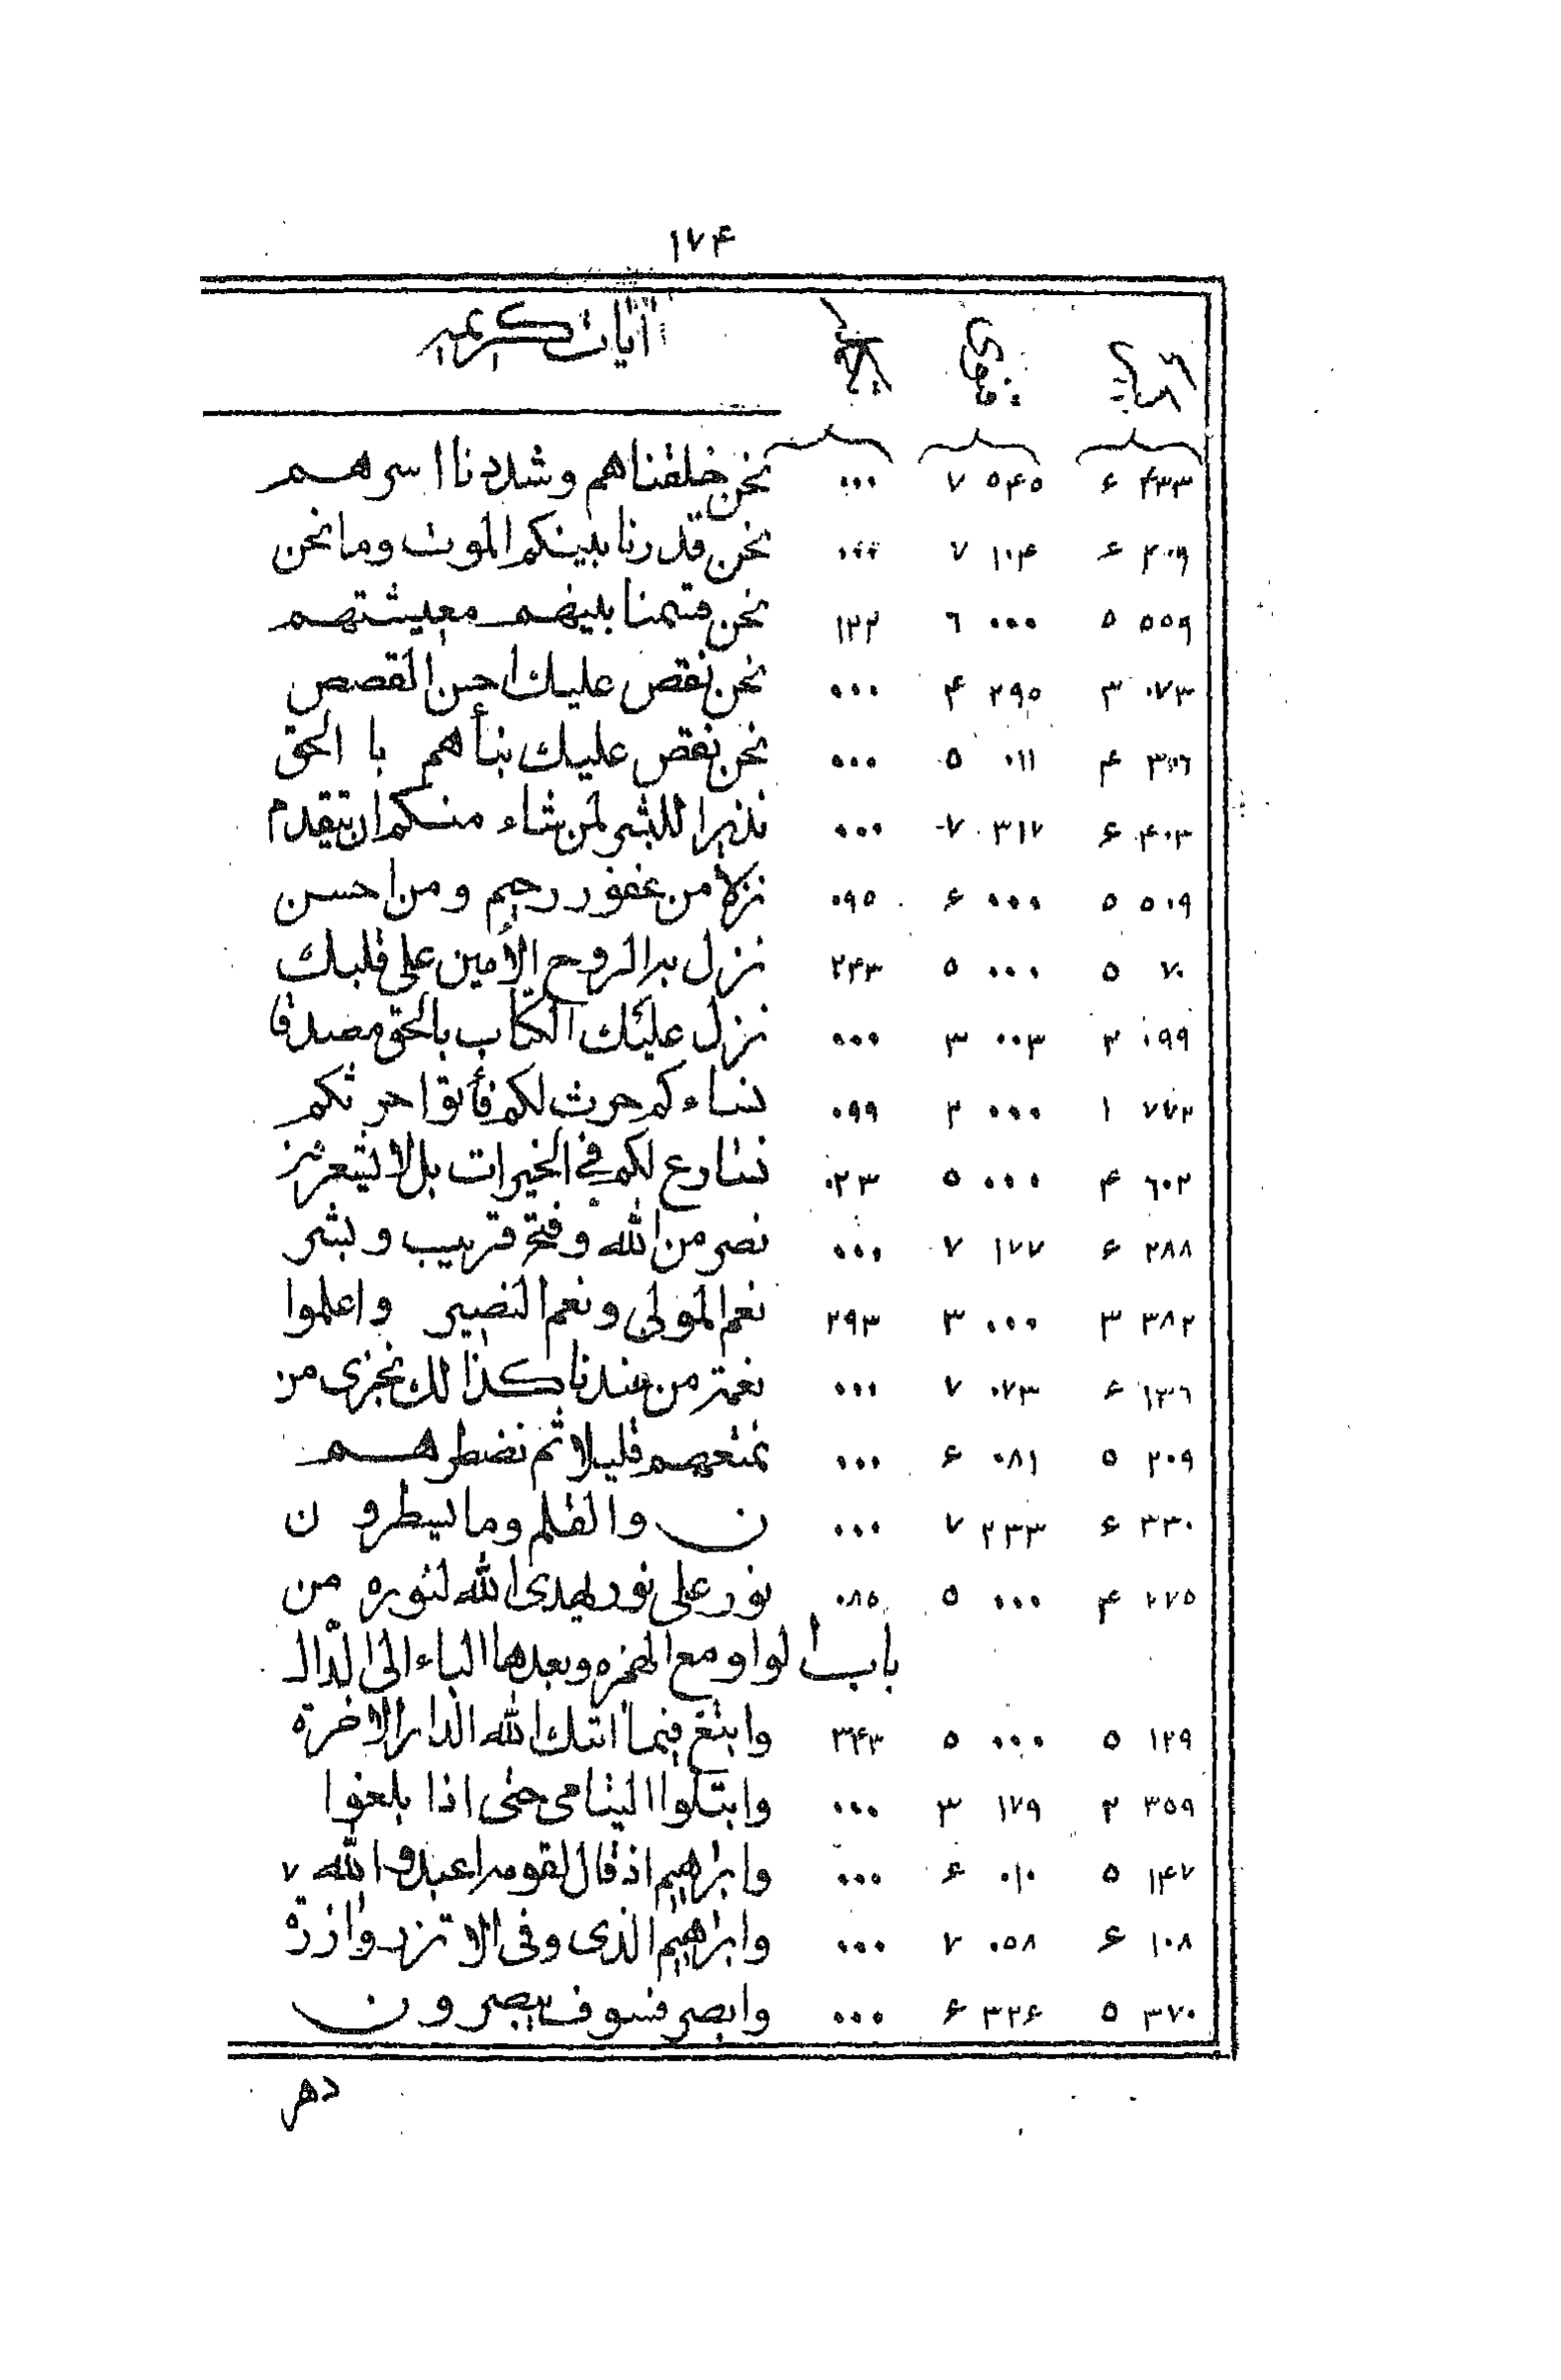 ۱۷۴
آیات کریمه
۴۳۳ ۶ ۵۴۵ ۷ ۰۰۰ نحن خلقناهم وشددنا اسرهم
۲۰۹ ۶ ۱۰۴ ۷ ۰۰۰ نحن قدرنا بینکم الموت وما نحن
۵۵۹ ۵ ۰۰۰ ٦ ۱۲۲ نحن قسمنا بینهم معیشتهم
۰۷۳ ۳ ۲۹۵ ۴ ۰۰۰ نحن نقص علیك احسن القصص
۳۰٦ ۴ ۰۱۱ ۵ ۰۰۰ نحن نقص علیك نبأهم با الحق
۴۰۳ ۶ ۳۱۷ ۷ ۰۰۰ نذیرا للبشر لمن شاء منکم ان یتقدم
۵۰۹ ۵ ۰۰۰ ۶ ۰۹۵ نزلا من غفور رحیم ومن احسن
۷۰ ۵ ۰۰۰ ۵ ۲۴۳ نزل به الروح الأمین علی قلبك
۱۹۹ ۲ ۰۰۳ ۳ ۰۰۰ نزل علیك الکتاب بالحق مصدقا
۷۷۲ ۱ ۰۰۰ ۲ ۰۹۹ نساءکم حرث لکم فأتوا حرثکم
٦۰۲ ۴ ۰۰۰ ۵ ۰۲۳ نسارع لکم فی الخیرات بل لا یشعرون
۲۸۸ ۶ ۱۷۷ ۷ ۰۰۰ نصر من الله وفتح قریب وبشر
۳۸۲ ۳ ۰۰۰ ۳ ۲۹۳ نعم المولی ونعم النصیر واعلموا
۱۳٦ ۶ ۰۷۳ ۷ ۰۰۰ نعمة من عندنا کذا لك نجزی من
۲۰۹ ۵ ۰۸۱ ۶ ۰۰۰ نمتعهم قلیلا ثم نضطرهم
۳۳۰ ۶ ۲۳۳ ۷ ۰۰۰ ن والقلم وما یسطرون
۲۷۵ ۴ ۰۰۰ ۵ ۰۸۵ نور علی نور یهدی الله لنوره من
باب الواو مع الهمزه وبعدها الباء الی الدّال
۱۲۹ ۵ ۰۰۰ ۵ ۳۴۳ وابتغ فیما اتیك الله الدار الاخرة
۳۵۹ ۲ ۱۷۹ ۳ ۰۰۰ وابتلوا الیتامی حتی اذا بلغوا
۱۴۷ ۵ ۰۱۰ ۶ ۰۰۰ وابراهیم اذ قال لقومه اعبدوا الله ۷
۱۰۸ ۶ ۰۵۸ ۷ ۰۰۰ وابراهیم الذی وفی الا تزر وازرة
۳۷۰ ۵ ۳۲۶ ۶ ۰۰۰ وابصر فسوف یبصرون